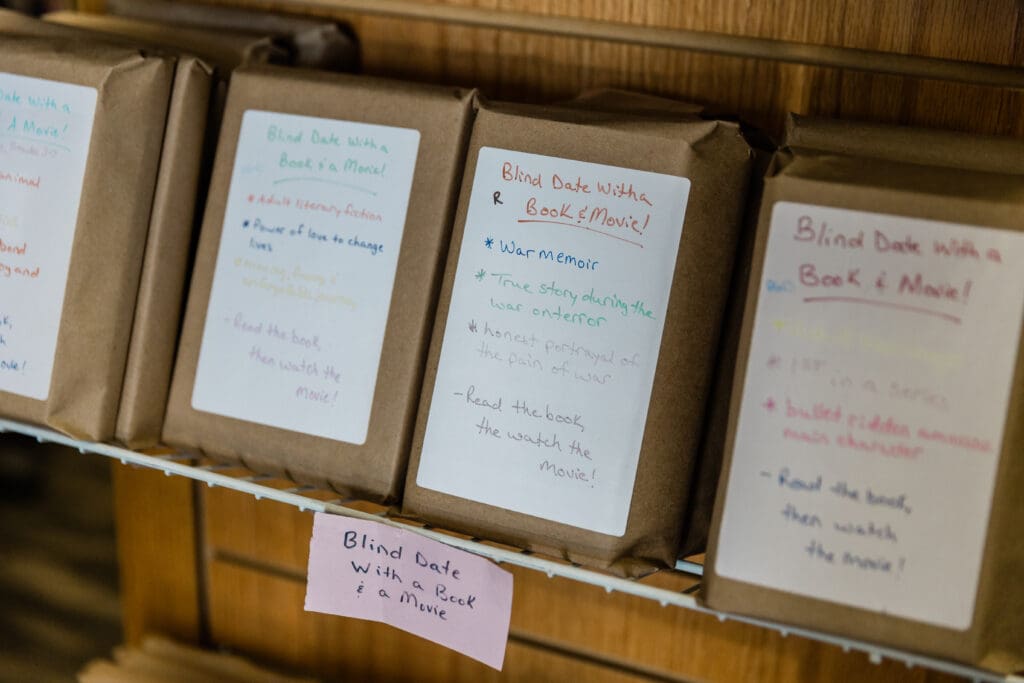 ate With a
& A Movie!
animal
bond
py and
ok,
h
ovie!
Blind Date With a
Book & a Movie!
* Adult literary fiction
* Power of love to change
lives
journey
- Read the book,
then watch the
Movie!
Blind Date With a
R Book & Movie!
* War memoir
* True story during the
war on terror
* honest portrayal of
the pain of war
- Read the book,
the watch the
Movie!
Blind Date With a
Book & Movie!
* 1st in a series
* bullet ridden amnesiac
main character
- Read the book,
then watch
the movie!
Blind Date
With a Book
& a Movie